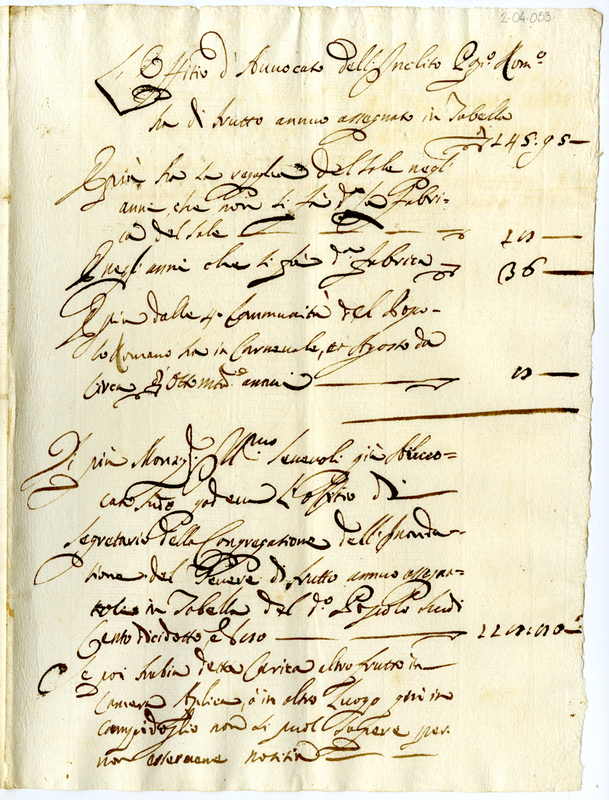 2-04-053
L'Offitio d'Auuocato dell'Inclito Pop.º Rom.º
ha di frutto annuo assegnato in Tabella
145:95
E più ha la regaglia del sale negl'
anni, che non si fa d.ª la fabri-
ca del sale
E negl'anni che si fà d.ª fabrica 36
E più dalle 4. Communità del Popo-
lo Romano ha in Carneuale, et Agosto da
circa annui
Di più Monsig.r Ill.mo già Auuo-
cato Sud.º godeua l'Offitio di
Segretario della Congregatione dell'Inonda-
tione del Teuere di frutto annuo assegna-
toles in Tabella del d.º Popolo Scudi
Cento dicidotto e
Se poi habia detta Carica altro frutto in
Camera Aplica, ò in altro Luogo quì in
Campidoglio non si puol sapere per
non esseruene notitia